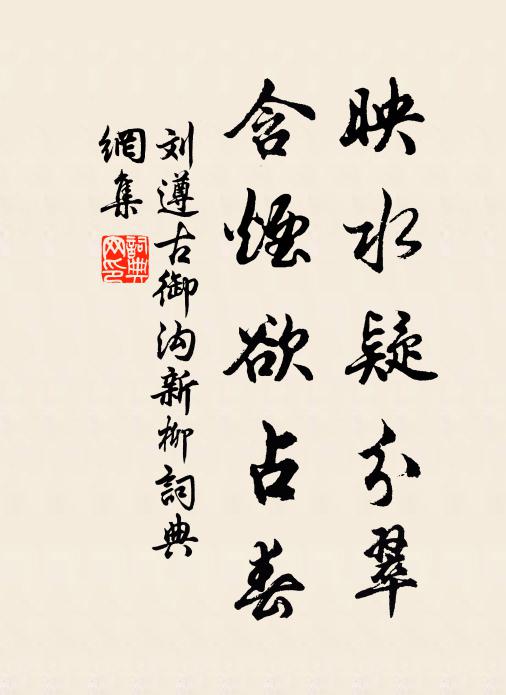 映水疑分翠
含煙欲占春
刘遵古御沟新柳詞典
網集
詞典
网印